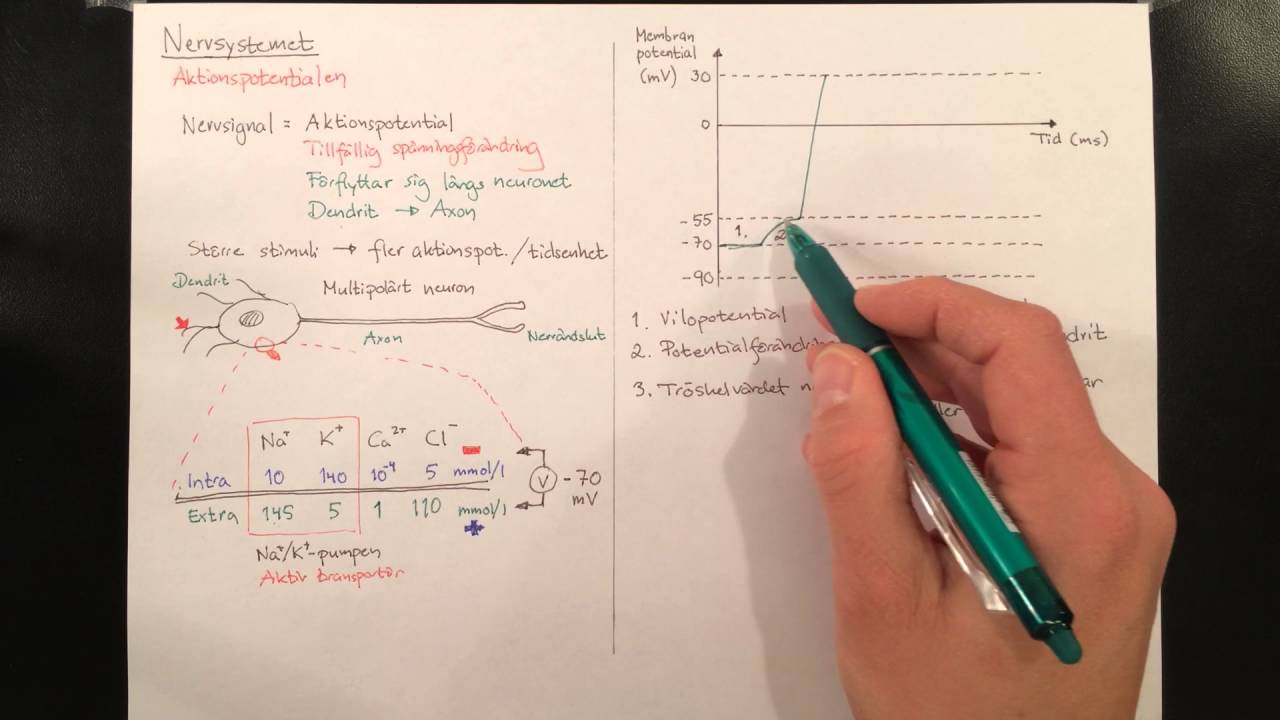 Nervsystemet
Aktionspotentialen
Nervsignal = Aktionspotential
Tillfällig spänningförändring
Förflyttar sig längs neuronet
Dendrit → Axon
Större stimuli → fler aktionspot./tidsenhet
Dendrit
Multipolärt neuron
Axon
Nervändslut
Na⁺ K⁺ Ca²⁺ Cl⁻
Intra 10 140 10⁻⁴ 5 mmol/l
Extra 145 5 1 110 mmol/l
V -70
mV
Na⁺/K⁺-pumpen
Aktiv transportör
Membran
potential
(mV) 30
0
Tid (ms)
-55
1. 2
-70
-90
1. Vilopotential
2. Potentialförändrin
3. Tröskelvärdet